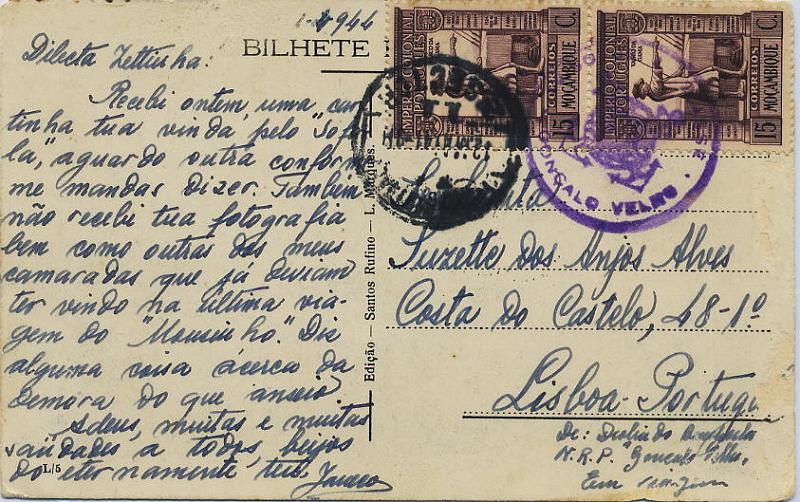 1-1-944
Dilecta Zettinha:
Recebi ontem, uma car-
tinha tua vinda pelo "Sofa-
la," aguardo outra confor-
me mandas dizer. Também
não recebi tua fotografia
bem como outras dos meus
camaradas que já deviam
ter vindo na última via-
gem do "Mousinho." Diz
alguma coisa ácerca da
demora do que anseio.
Adeus, muitas e muitas
saúdades a todos, beijos
do eternamente teu,
L/5
BILHETE
Edição — Santos Rufino — L. Marques.
IMPÉRIO COLONIAL PORTUGUÊS
15 C.
CORREIOS
MOÇAMBIQUE
IMPÉRIO COLONIAL PORTUGUÊS
15 C.
CORREIOS
MOÇAMBIQUE
GONÇALO VELHO
Suzette dos Anjos Alves
Costa do Castelo, 48-1º
Lisboa-Portugal
De:
N.R.P. "Gonçalo Velho"
Em viagem